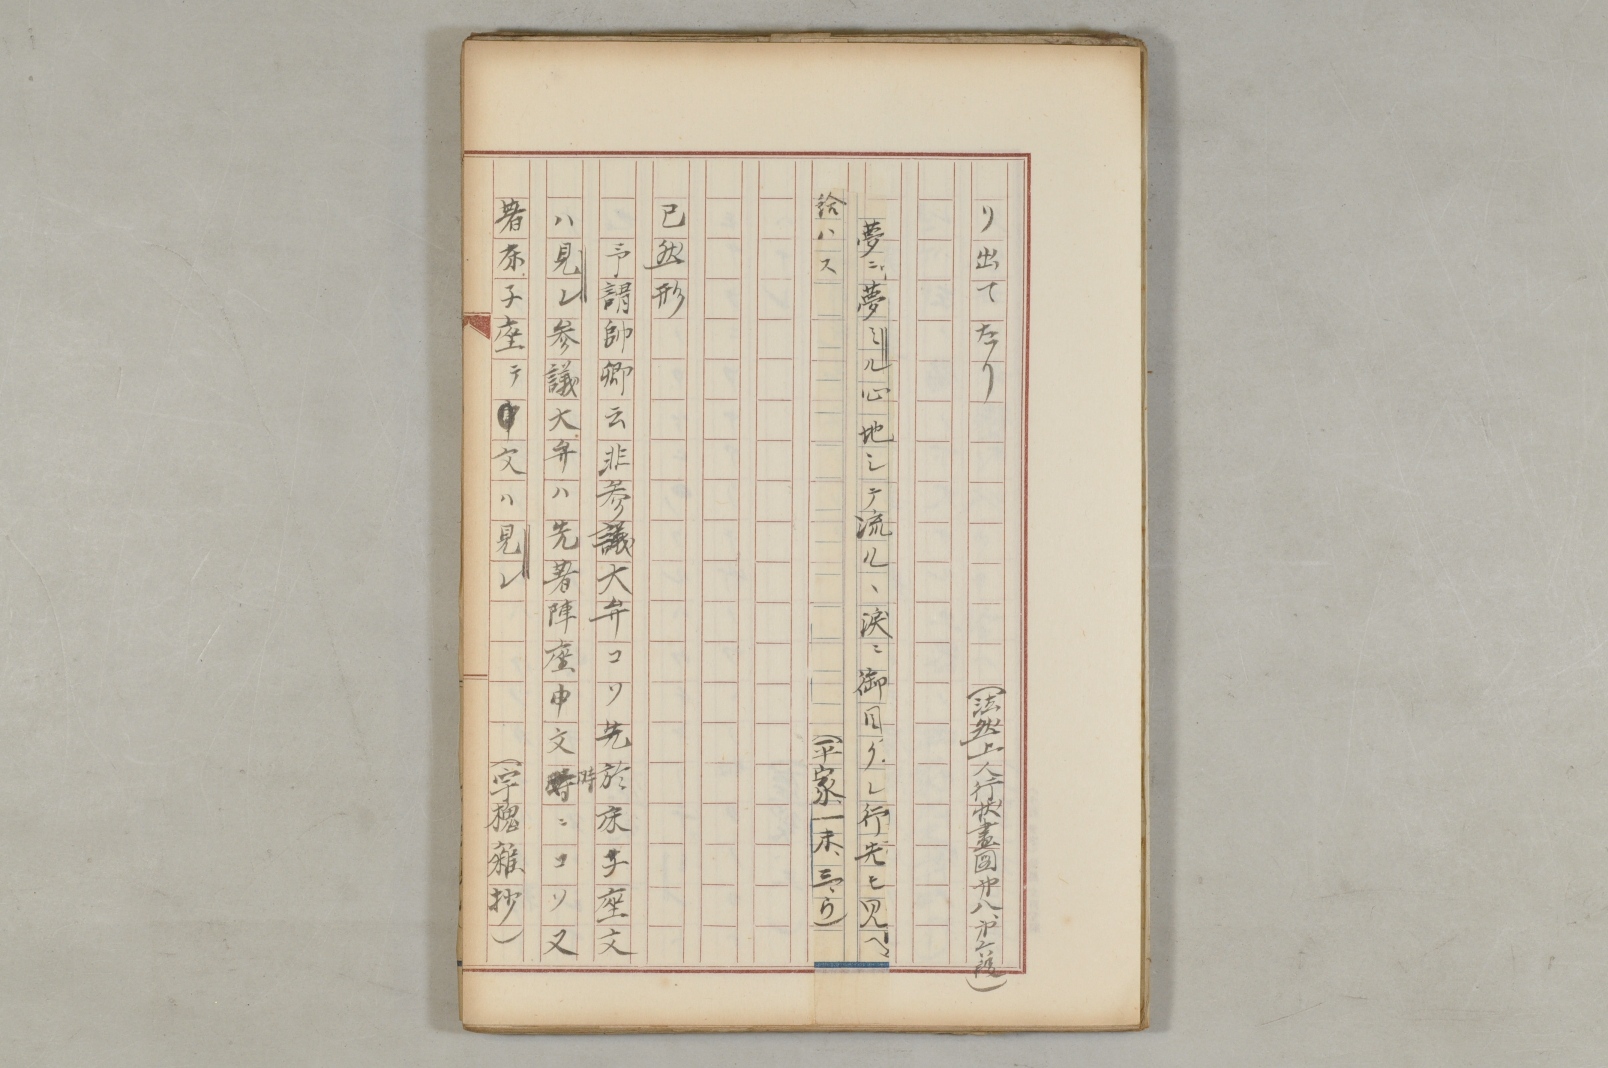 り出てたり
(法然上人行状畫図第八、第六段)
夢ニ夢ミル心地シテ流ル、涙ニ御目クレ行先モ見ヘ
給ハス
(平家一末、三ウ)
已然形
予謂帥卿云非参議大弁コソ先於床子座文
ハ見レ参議大弁ハ先著陣座申文時ニコソ又
著床子座テ申文ハ見レ
(宇槐雑抄)